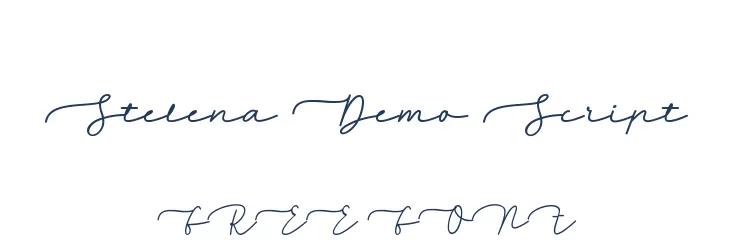 Stelena Demo Script
FREE FONT